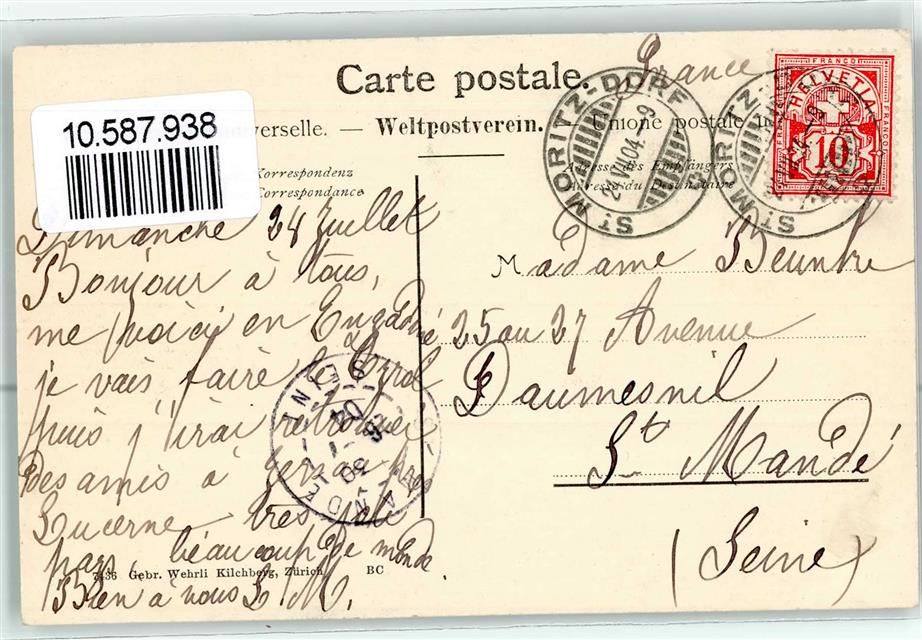 Carte postale.
France
10.587.938
universelle. — Weltpostverein. — Unione postale
Korrespondenz
Correspondance
Adresse des Empfängers
Adresse du Destinataire
ST. MORITZ-DORF
ST. MORITZ-
FRANCO
HELVETIA
FRANCO
FRANCO
10
Dimanche 24 Juillet
Bonjour à tous,
me voici en Engadine
je vais faire le Tyrol
puis j'irai retrouver
des amis à Gersau près
Lucerne très joli
pays, beaucoup de monde
Bien à vous L M.
Madame
25 au 27 Avenue
Daumesnil
St Mandé
(Seine)
SEINE
7436 Gebr. Wehrli Kilchberg, Zürich BC